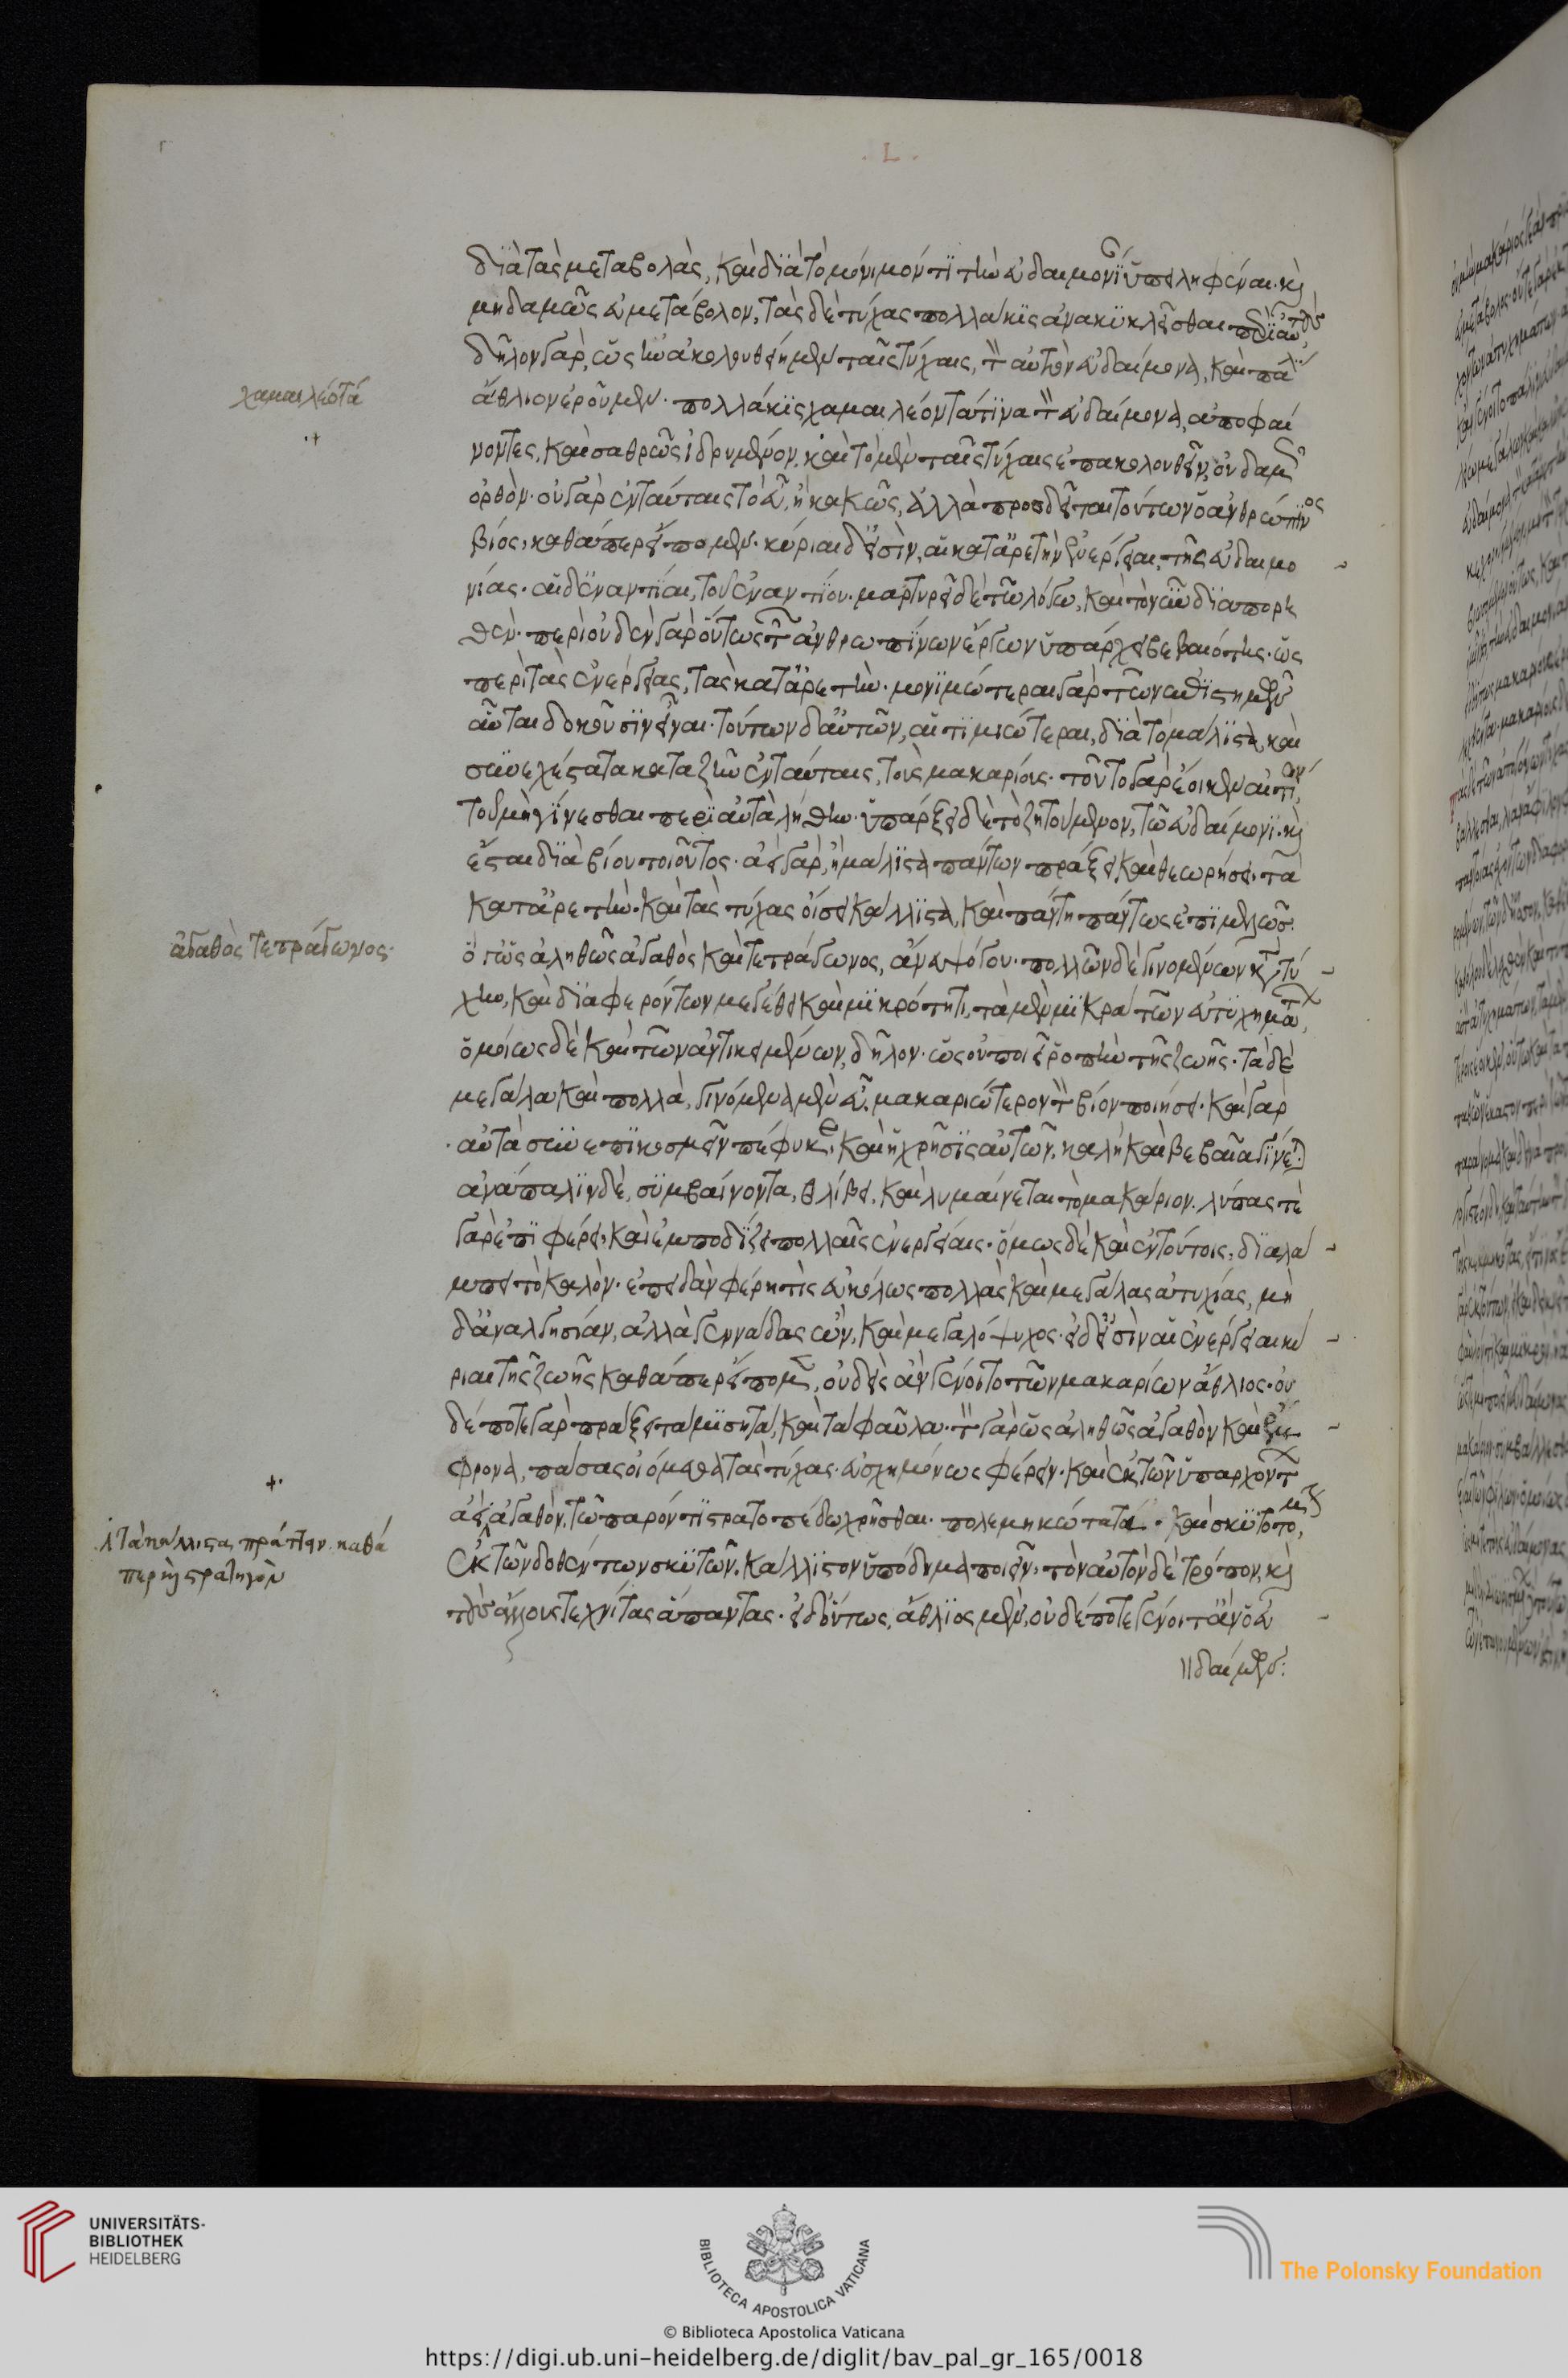 . L .
διὰ τὰς μεταβολὰς, καὶ διὰ τὸ μόνιμόν τι τὴν εὐδαιμονί ὑπειληφέναι. κὶ
μηδαμῶς εὐμετάβολον, τὰς δὲ τύχας πολλάκις ἀνακυκλεῖσθαι περὶ τοὺς αὐτ
δῆλον γὰρ, ὡς ἢν ἀκολουθείημεν ταῖς τύχαις, τ αὐτὸν εὐδαίμονα, καὶ πά
ἄθλιον ἐροῦμεν. πολλάκις χαμαιλέοντά τινα τ εὐδαίμονα, ἀποφαί
νοντες, καὶ σαθρῶς ἱδρυμένον. καὶ τὸ μὲν ταῖς τύχαις ἐπακολουθεῖν, οὐδαμ
ὀρθὸν. οὐ γὰρ ἐν ταύταις τὸ εὖ, ἢ κακῶς, ἀλλὰ προσδεῖται τούτων ὁ ἀνθρώπινος
βίος, καθάπερ εἴπομεν. κύριαι δ' εἰσὶν, αἱ κατ' ἀρετὴν ἐνέργειαι, τῆς εὐδαιμο
νίας. αἱ δ' ἐναντίαι, τοῦ ἐναντίου. μαρτυρεῖ δὲ τῶ λόγω, καὶ τὸ νῦν διαπορη
θὲν. περὶ οὐδὲν γὰρ οὕτως τ ἀνθρωπίνων ἔργων ὑπάρχει βεβαιότης. ὡς
περὶ τὰς ἐνεργείας, τὰς κατ' ἀρετὴν. μονιμώτεραι γὰρ τῶν ἐπιστημῶν
αὗται δοκοῦσιν εἶναι. τούτων δ' αὐτῶν, αἱ τιμιώτεραι, διὰ τὸ μάλιστα, καὶ
συνεχέστατα καταζῆν ἐν ταύταις, τοὺς μακαρίους. τοῦτο γὰρ ἔοικεν αἰτί
τοῦ μὴ γίνεσθαι περὶ αὐτὰ λήθην. ὑπάρξει δὲ τὸ ζητούμενον, τῶ εὐδαίμονι. κὶ
ἔσται διὰ βίου τοιοῦτος. ἀεὶ γὰρ, ἢ μάλιστα πάντων πράξει καὶ θεωρήσει, τὰ
κατ' ἀρετὴν. καὶ τὰς τύχας οἴσει κάλλιστα, καὶ πάντη πάντως ἐπιμελῶς.
ὅ γ' ὡς ἀληθῶς ἀγαθὸς καὶ τετράγωνος, ἄνευ ψόγου. πολλῶν δὲ γινομένων κτ τύ
χην, καὶ διαφερόντων μεγέθει καὶ μικρότητι, τὰ μὲν μικρὰ τῶν εὐτυχημάτ
ὁμοίως δὲ καὶ τῶν ἀντικειμένων, δῆλον. ὡς οὐ ποιεῖ ῥοπὴν τῆς ζωῆς. τὰ δὲ
μεγάλα καὶ πολλὰ, γινόμενα μὲν εὖ. μακαριώτερον τ βίον ποιήσει. καὶ γὰρ
αὐτὰ συνεπικοσμεῖν πέφυκε, καὶ ἡ χρῆσις αὐτῶν, καλὴ καὶ βεβαῖα γίνετ
ἀνάπαλιν δὲ, συμβαίνοντα, θλίβει. καὶ λυμαίνεται τὸ μακάριον. λύπας τὲ
γὰρ ἐπιφέρει, καὶ ἐμποδίζει πολλαῖς ἐνεργείαις. ὅμως δὲ καὶ ἐν τούτοις, διαλά
μπει τὸ καλὸν. ἐπειδὰν φέρη τὶς εὐκόλως πολλὰς καὶ μεγάλας ἀτυχίας, μὴ
δι' ἀναλγησίαν, ἀλλὰ γεννάδας ὢν, καὶ μεγαλόψυχος. εἰ δ' εἰσὶν αἱ ἐνέργειαι κύ
ριαι τῆς ζωῆς καθάπερ εἴπομεν, οὐδεὶς ἂν γένοιτο τῶν μακαρίων ἄθλιος. οὐ
δέποτε γὰρ πράξει τὰ μισητὰ, καὶ τὰ φαῦλα. τ γὰρ ὡς ἀληθῶς ἀγαθὸν καὶ ἔμ
φρονα, πάσας οἰόμεθα τὰς τύχας. εὐσχημόνως φέρειν. καὶ ἐκ τῶν ὑπαρχόντ
ἀεὶ ἀγαθὸν, τῶ παρόντι στρατοπέδω χρῆσθαι. πολεμικώτατα. καὶ σκυτοτόμ
ἐκ τῶν δοθέντων σκυτῶν. κάλλιστον ὑπόδημα ποιεῖν. τὸν αὐτὸν δὲ τρόπον, κὶ
τοὺς ἄλλους τεχνίτας ἅπαντας. εἰ δ' οὕτως, ἄθλιος μὲν, οὐδέποτε γένοιτ' ἂν ὁ εὐ
δαίμων:
χαμαιλέοτά
ἀγαθὸς τετράγωνος.
τὰ κάλλιστα πράττειν καθά
περ κὶ στρατηγὸν
UNIVERSITÄTS-
BIBLIOTHEK
HEIDELBERG
BIBLIOTECA APOSTOLICA VATICANA
The Polonsky Foundation
© Biblioteca Apostolica Vaticana
https://digi.ub.uni-heidelberg.de/diglit/bav_pal_gr_165/0018